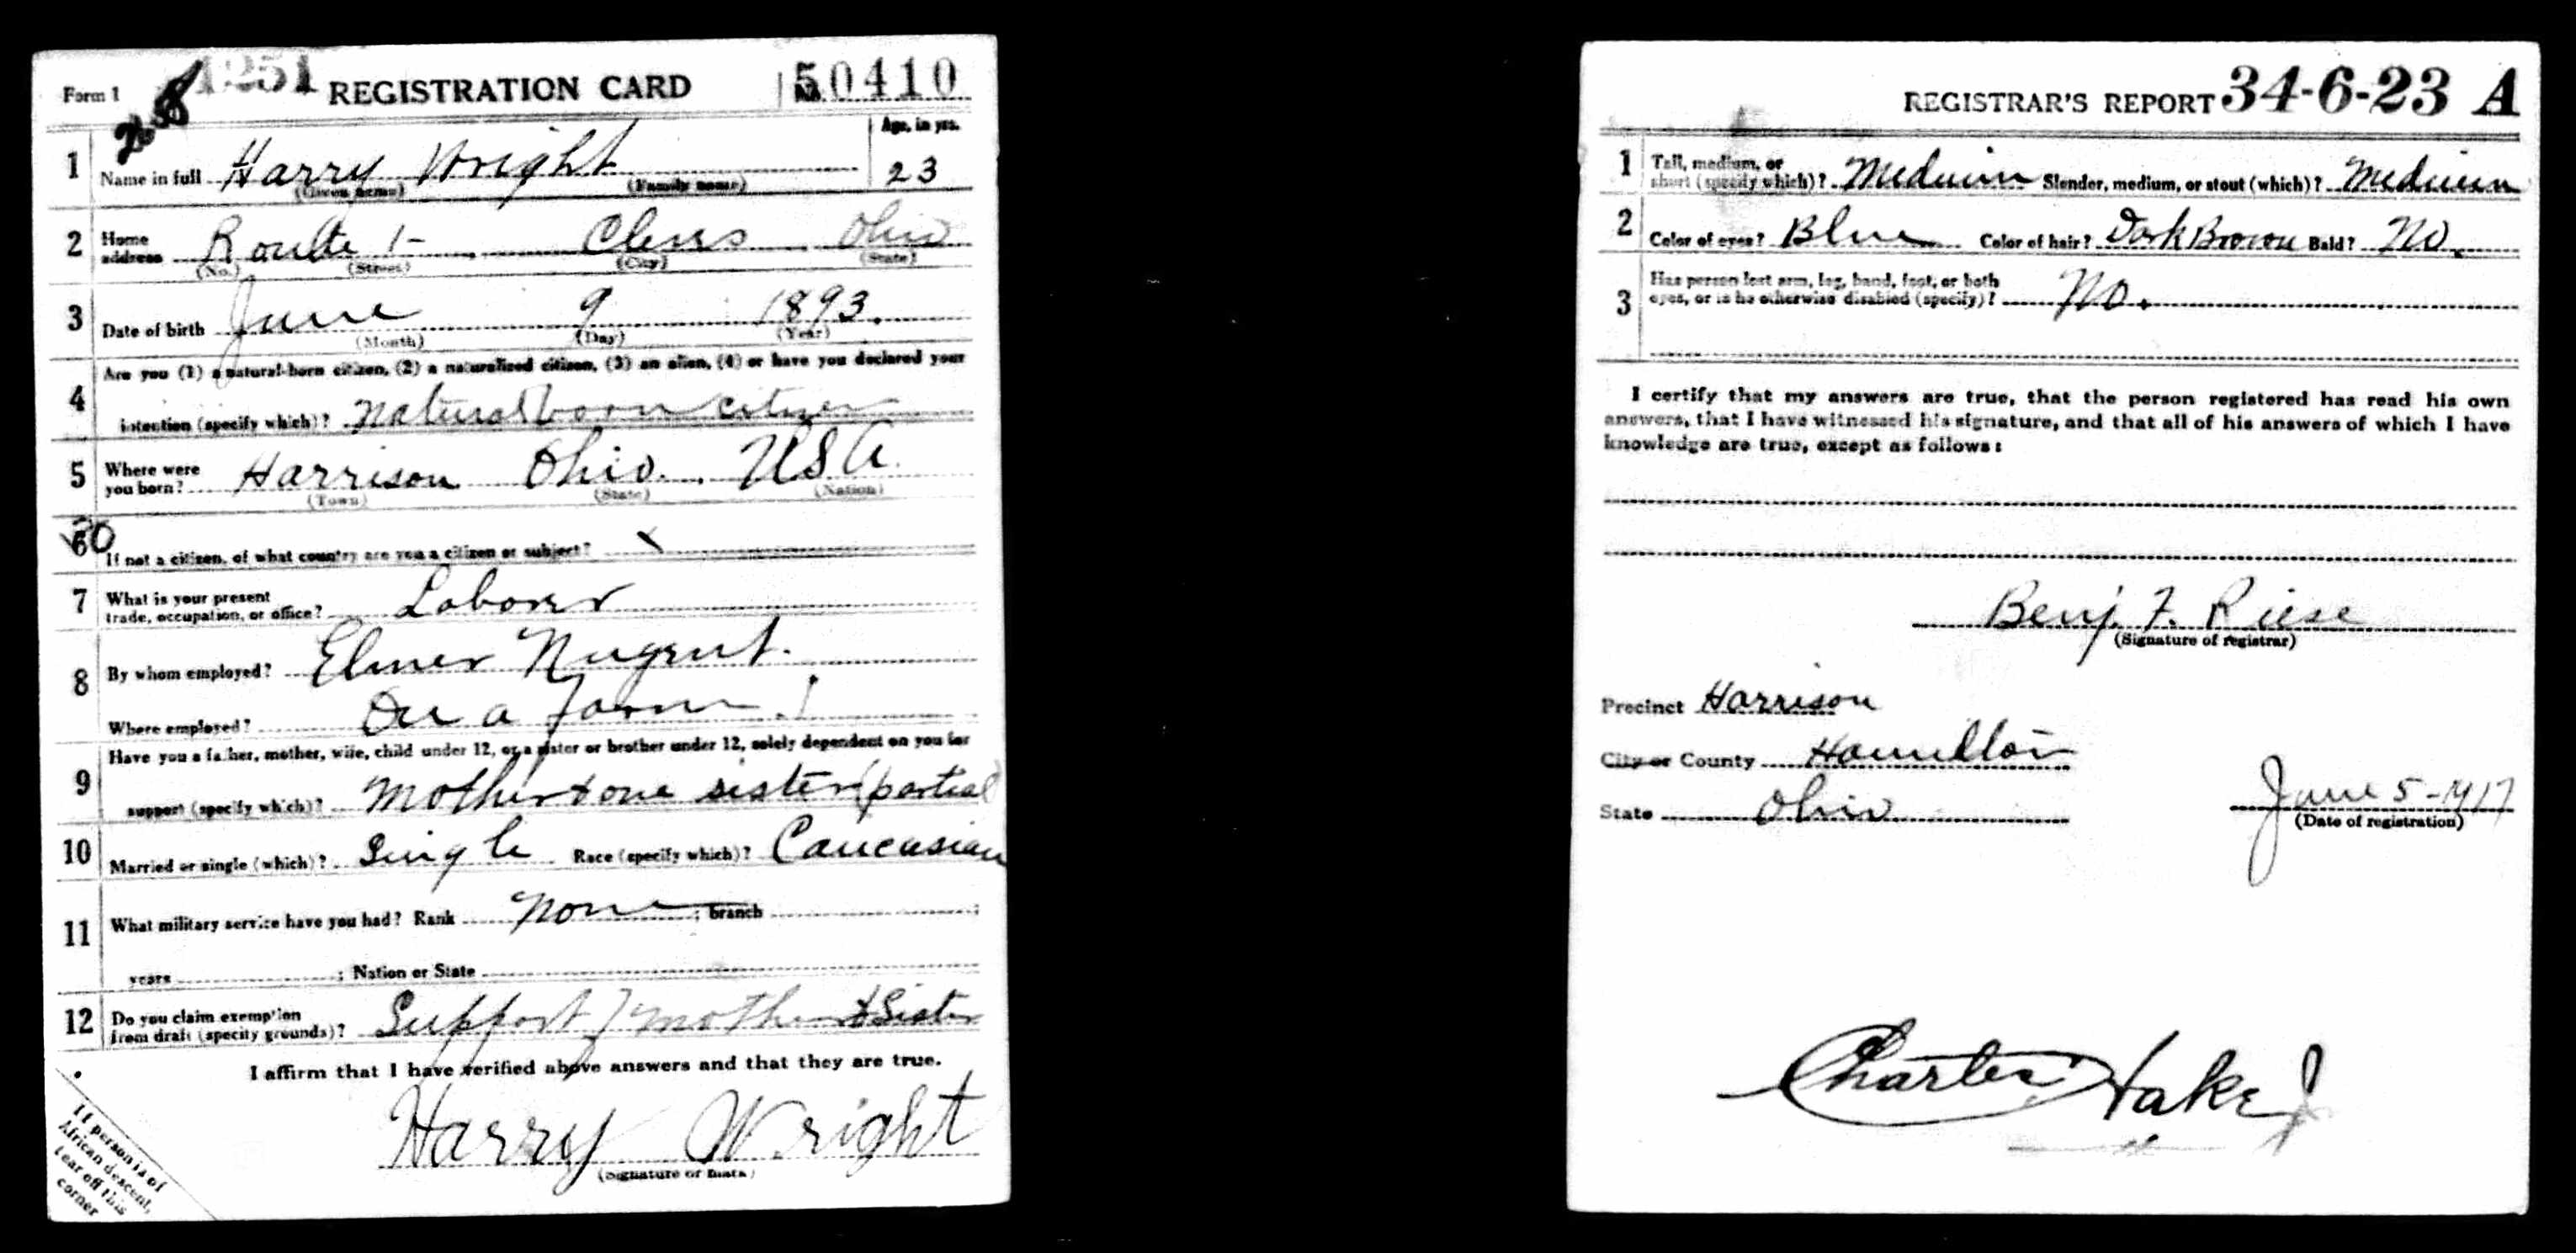 Form 1 1251 REGISTRATION CARD No. 50410
268
Age, in yrs.
1 Name in full Harry Wright 23
(Given name) (Family name)
2 Home address Route 1- Cleves Ohio
(No.) (Street) (City) (State)
3 Date of birth June 9 1893.
(Month) (Day) (Year)
Are you (1) a natural-born citizen, (2) a naturalized citizen, (3) an alien, (4) or have you declared your
4 intention (specify which)? Natural born citizen
5 Where were you born? Harrison Ohio. USA.
(Town) (State) (Nation)
6 If not a citizen, of what country are you a citizen or subject? X
7 What is your present trade, occupation, or office? Laborer
8 By whom employed? Elmer Nugent.
Where employed? On a Farm
Have you a father, mother, wife, child under 12, or a sister or brother under 12, solely dependent on you for
9 support (specify which)? Mother & one sister (partial)
10 Married or single (which)? Single Race (specify which)? Caucasian
11 What military service have you had? Rank None ; branch ;
years ; Nation or State
12 Do you claim exemption from draft (specify grounds)? Support of mother & Sister
I affirm that I have verified above answers and that they are true.
Harry Wright
(Signature or mark)
If person is of
African descent,
tear off this
corner
REGISTRAR'S REPORT 34-6-23 A
1 Tall, medium, or short (specify which)? Medium Slender, medium, or stout (which)? Medium
2 Color of eyes? Blue Color of hair? Dark Brown Bald? No.
3 Has person lost arm, leg, hand, foot, or both
eyes, or is he otherwise disabled (specify)? No.
I certify that my answers are true, that the person registered has read his own
answers, that I have witnessed his signature, and that all of his answers of which I have
knowledge are true, except as follows:
Benj. F. Riese
(Signature of registrar)
Precinct Harrison
City or County Hamilton
State Ohio June 5-1917
(Date of registration)